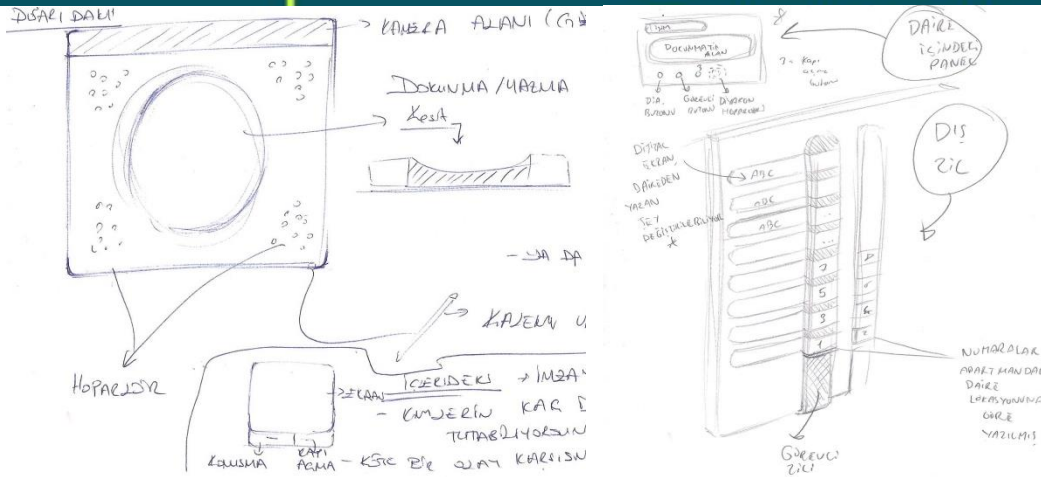 DIŞARIDAKİ
KAMERA ALANI (
DOKUNMA / YAZMA
Kesit
- YA DA
KALEMİ
HOPARLÖR
EKRAN
İÇERİDEKİ → İMZA
- KİMLERİN KAÇ
TUTABİLİYORSUN
KONUŞMA
KAPI AÇMA
- KÖTÜ BİR OLAY KARŞISIN
DOKUNMATİK ALAN
DİA. BUTONU
GÖREVLİ BUTONU
DİYAFON HOPARLÖRÜ
? = Kapı açma butonu
DAİRE İÇİNDEKİ PANEL
DIŞ ZİL
DİJİTAL EKRAN,
DAİREDEN
YAZAN
ŞEY
DEĞİŞTİRİLEBİLİYOR
ABC
ABC
ABC
...
...
7
5
3
1
8
6
4
2
NUMARALAR
APARTMANDA
DAİRE
LOKASYONUNA
GÖRE
YAZILMIŞ
GÖREVLİ
ZİLİ